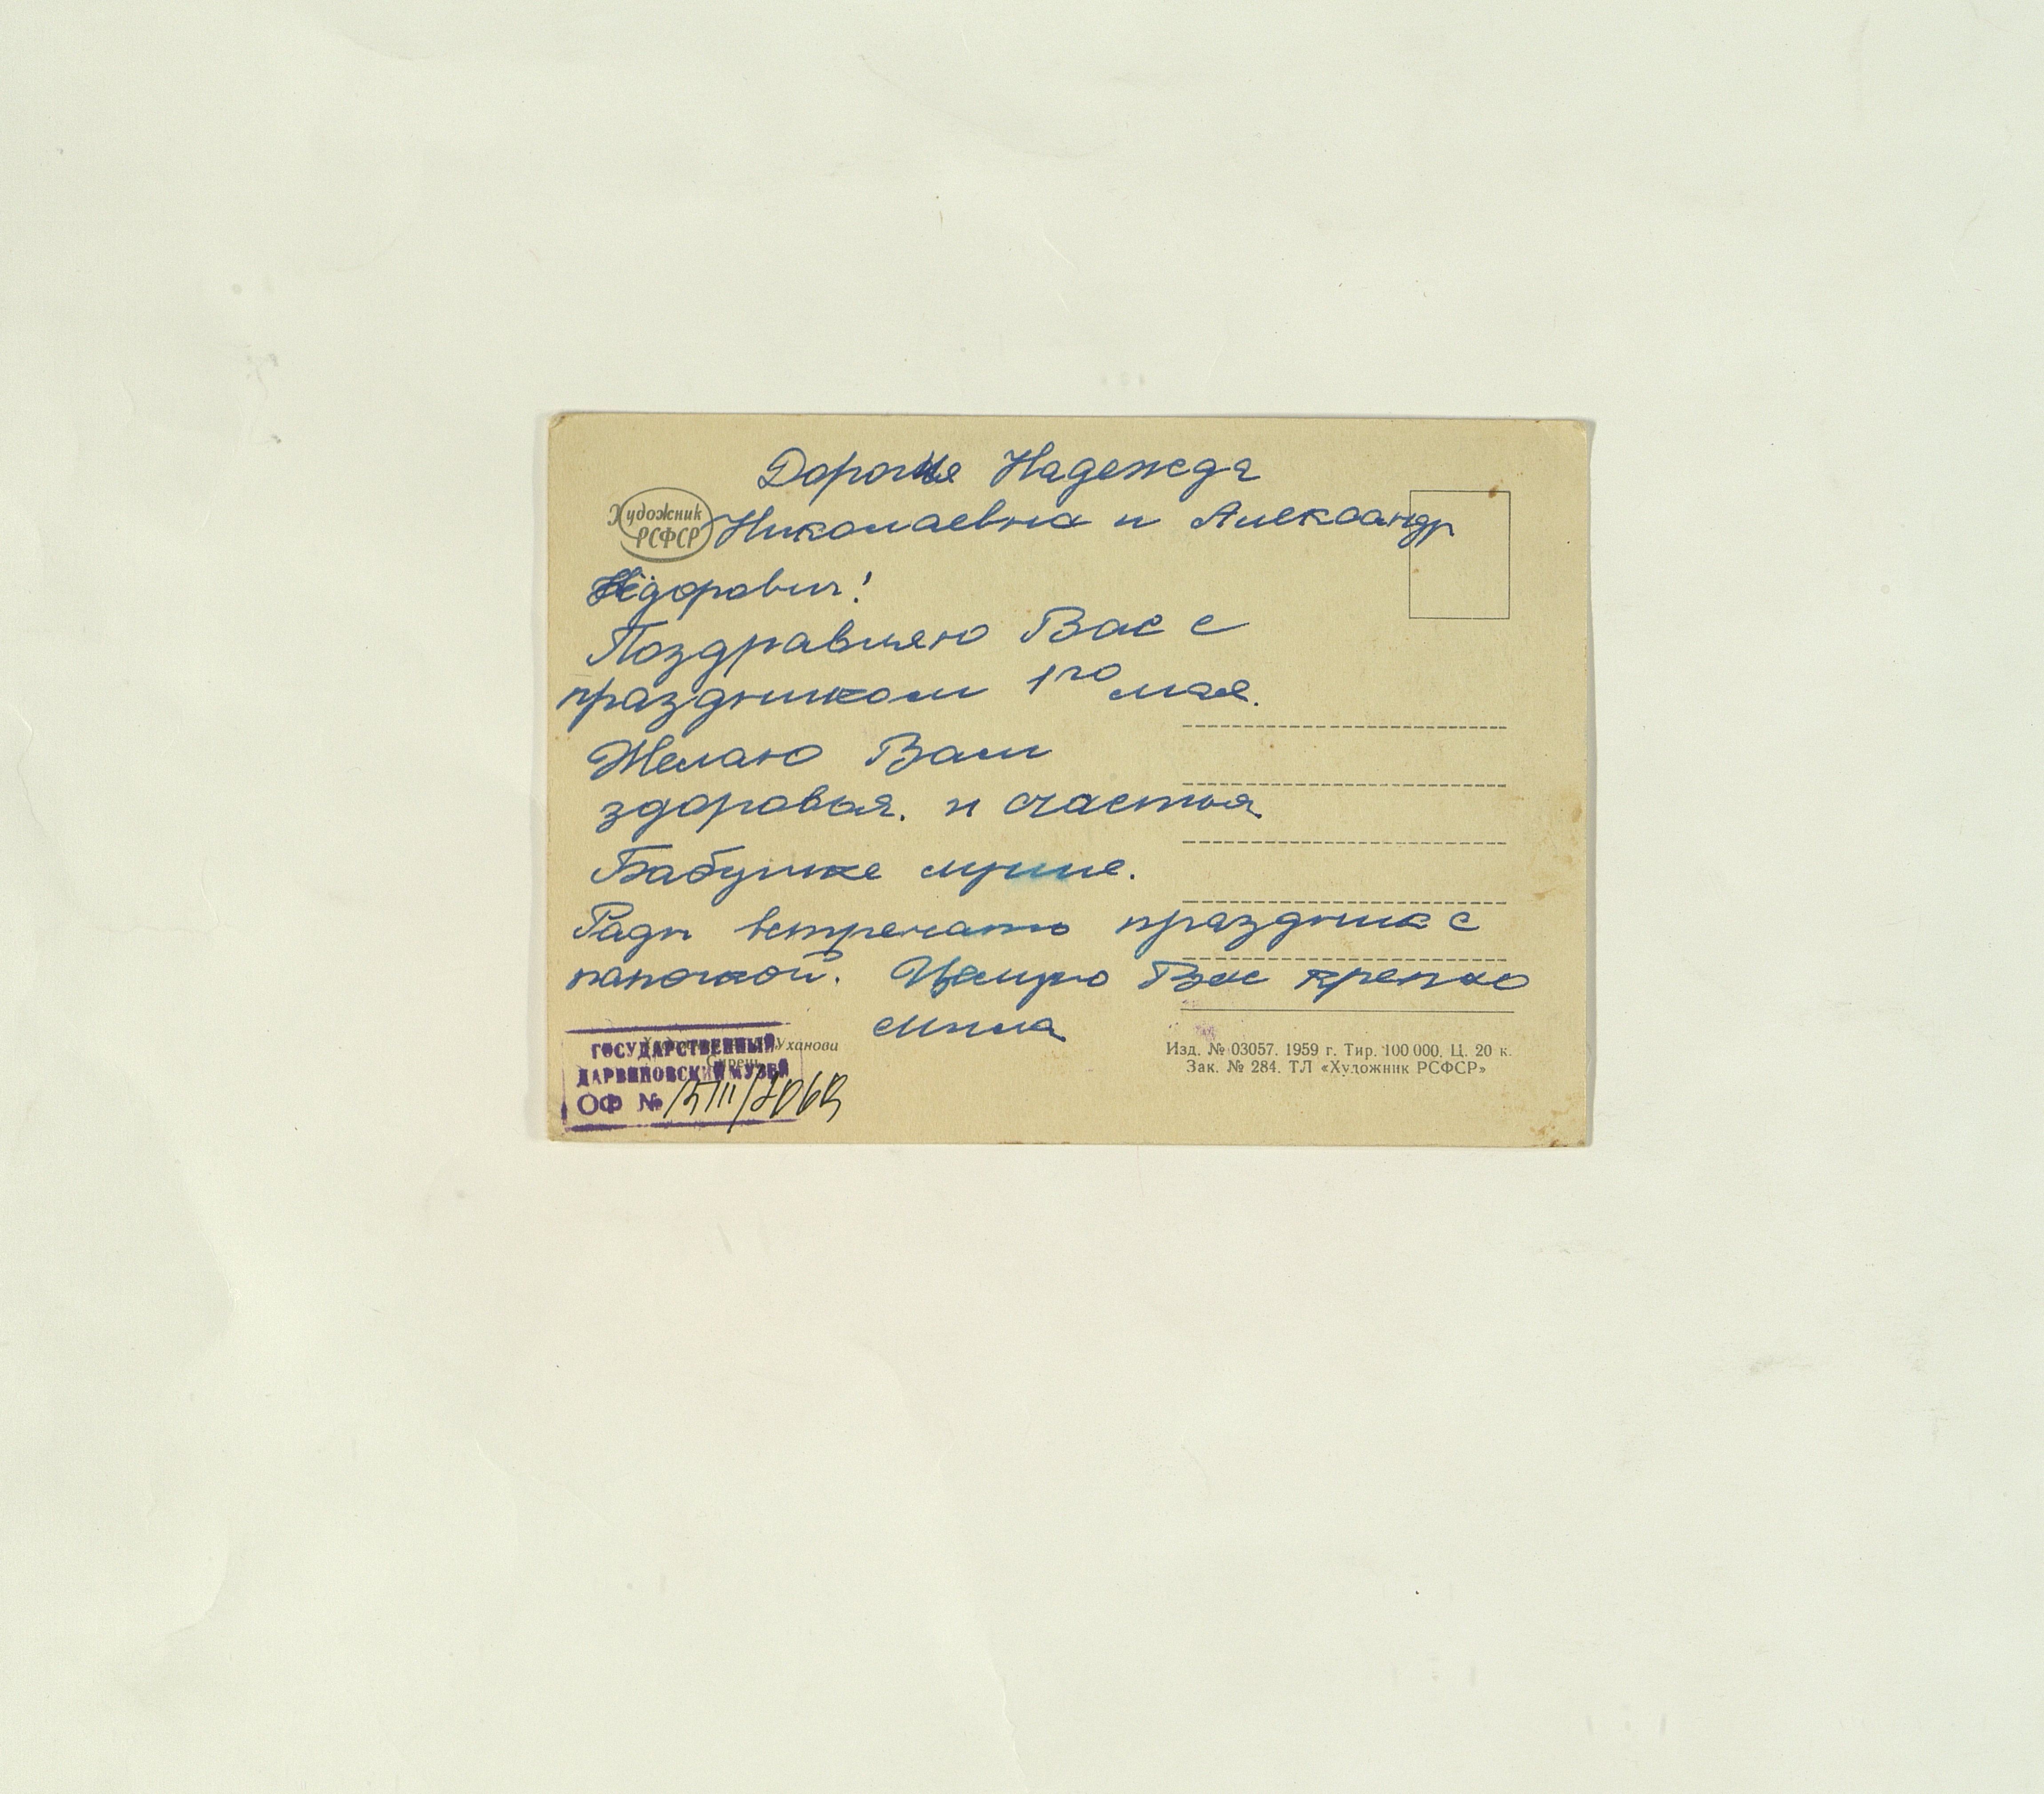 Дорогие Надежда
Художник
РСФСР
Николаевна и Александр
Фёдорович!
Поздравляю Вас с
праздником 1го мая.
Желаю Вам
здоровья. и счастья
Бабушке лучше.
Рады встречать праздник с
папочкой. Целую Вас крепко
Мила
Уханови
Сирень
ГОСУДАРСТВЕННЫЙ
ДАРВИНОВСКИЙ МУЗЕЙ
ОФ №
Изд. № 03057. 1959 г. Тир. 100 000. Ц. 20 к.
Зак. № 284. ТЛ «Художник РСФСР»